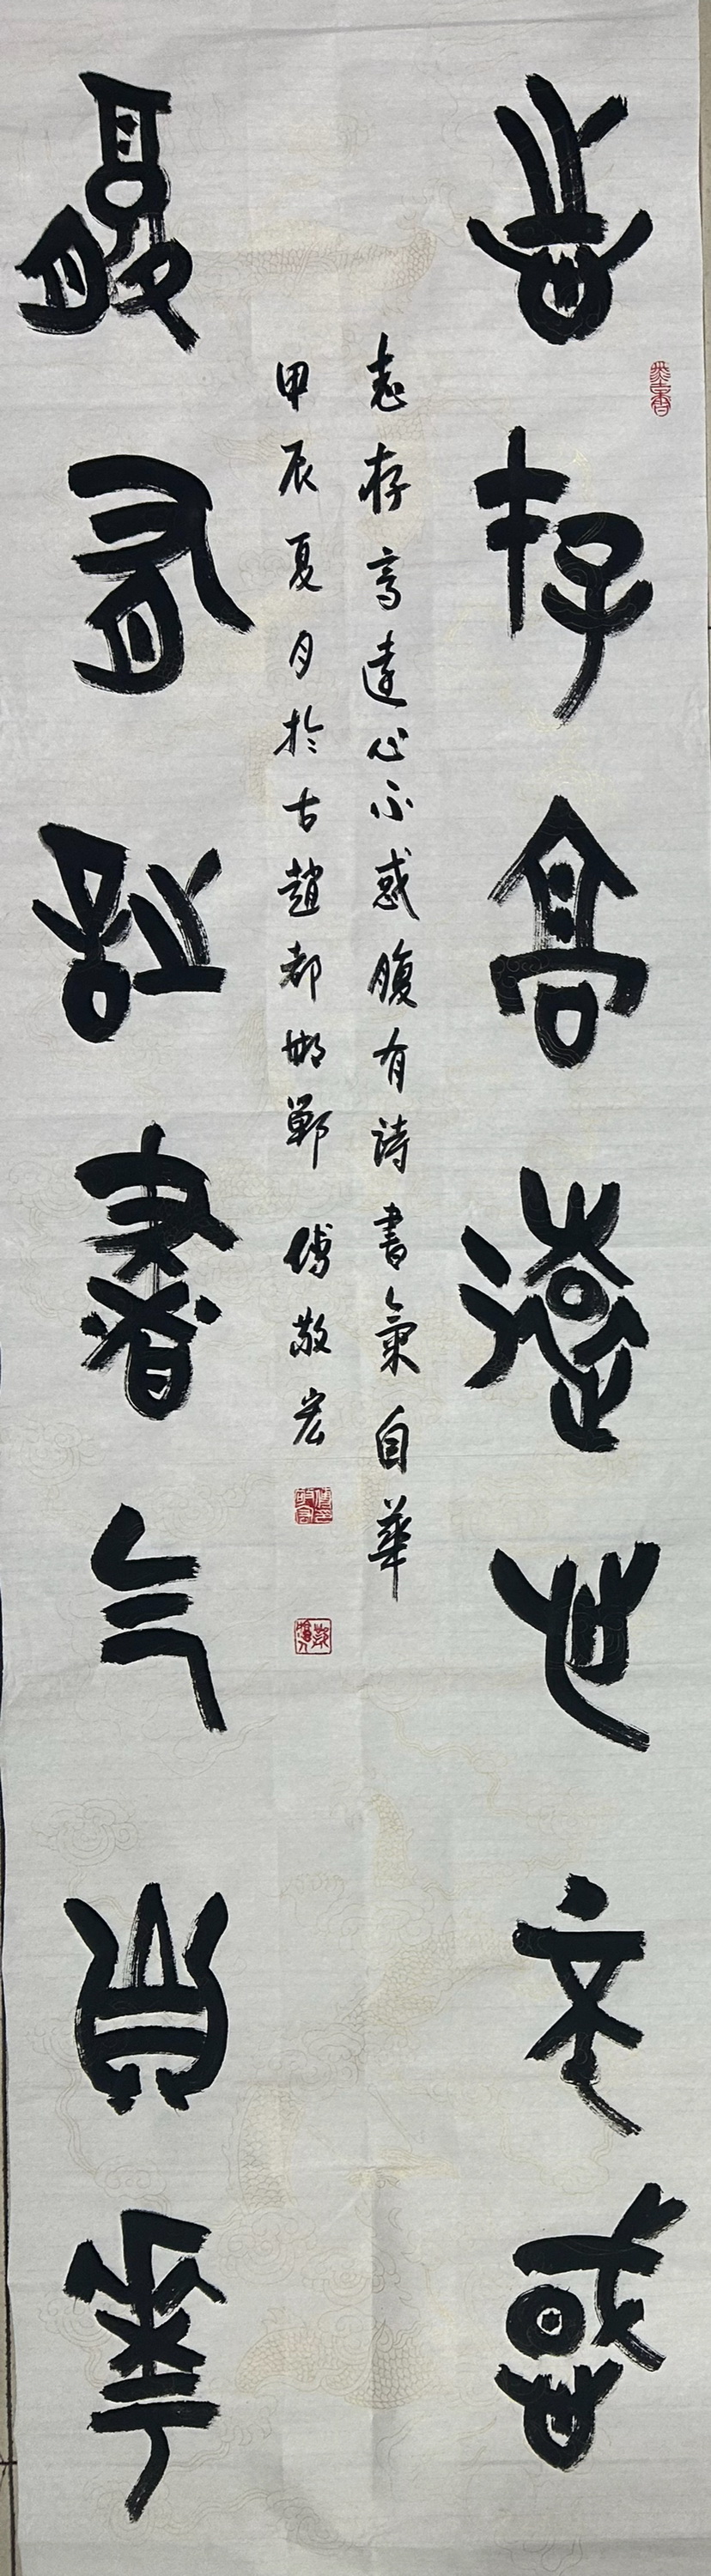 志存高遠心不惑
志存高遠心不惑腹有詩書氣自華
甲辰夏月於古趙都邯鄲 傅敬宏
腹有詩書气自華